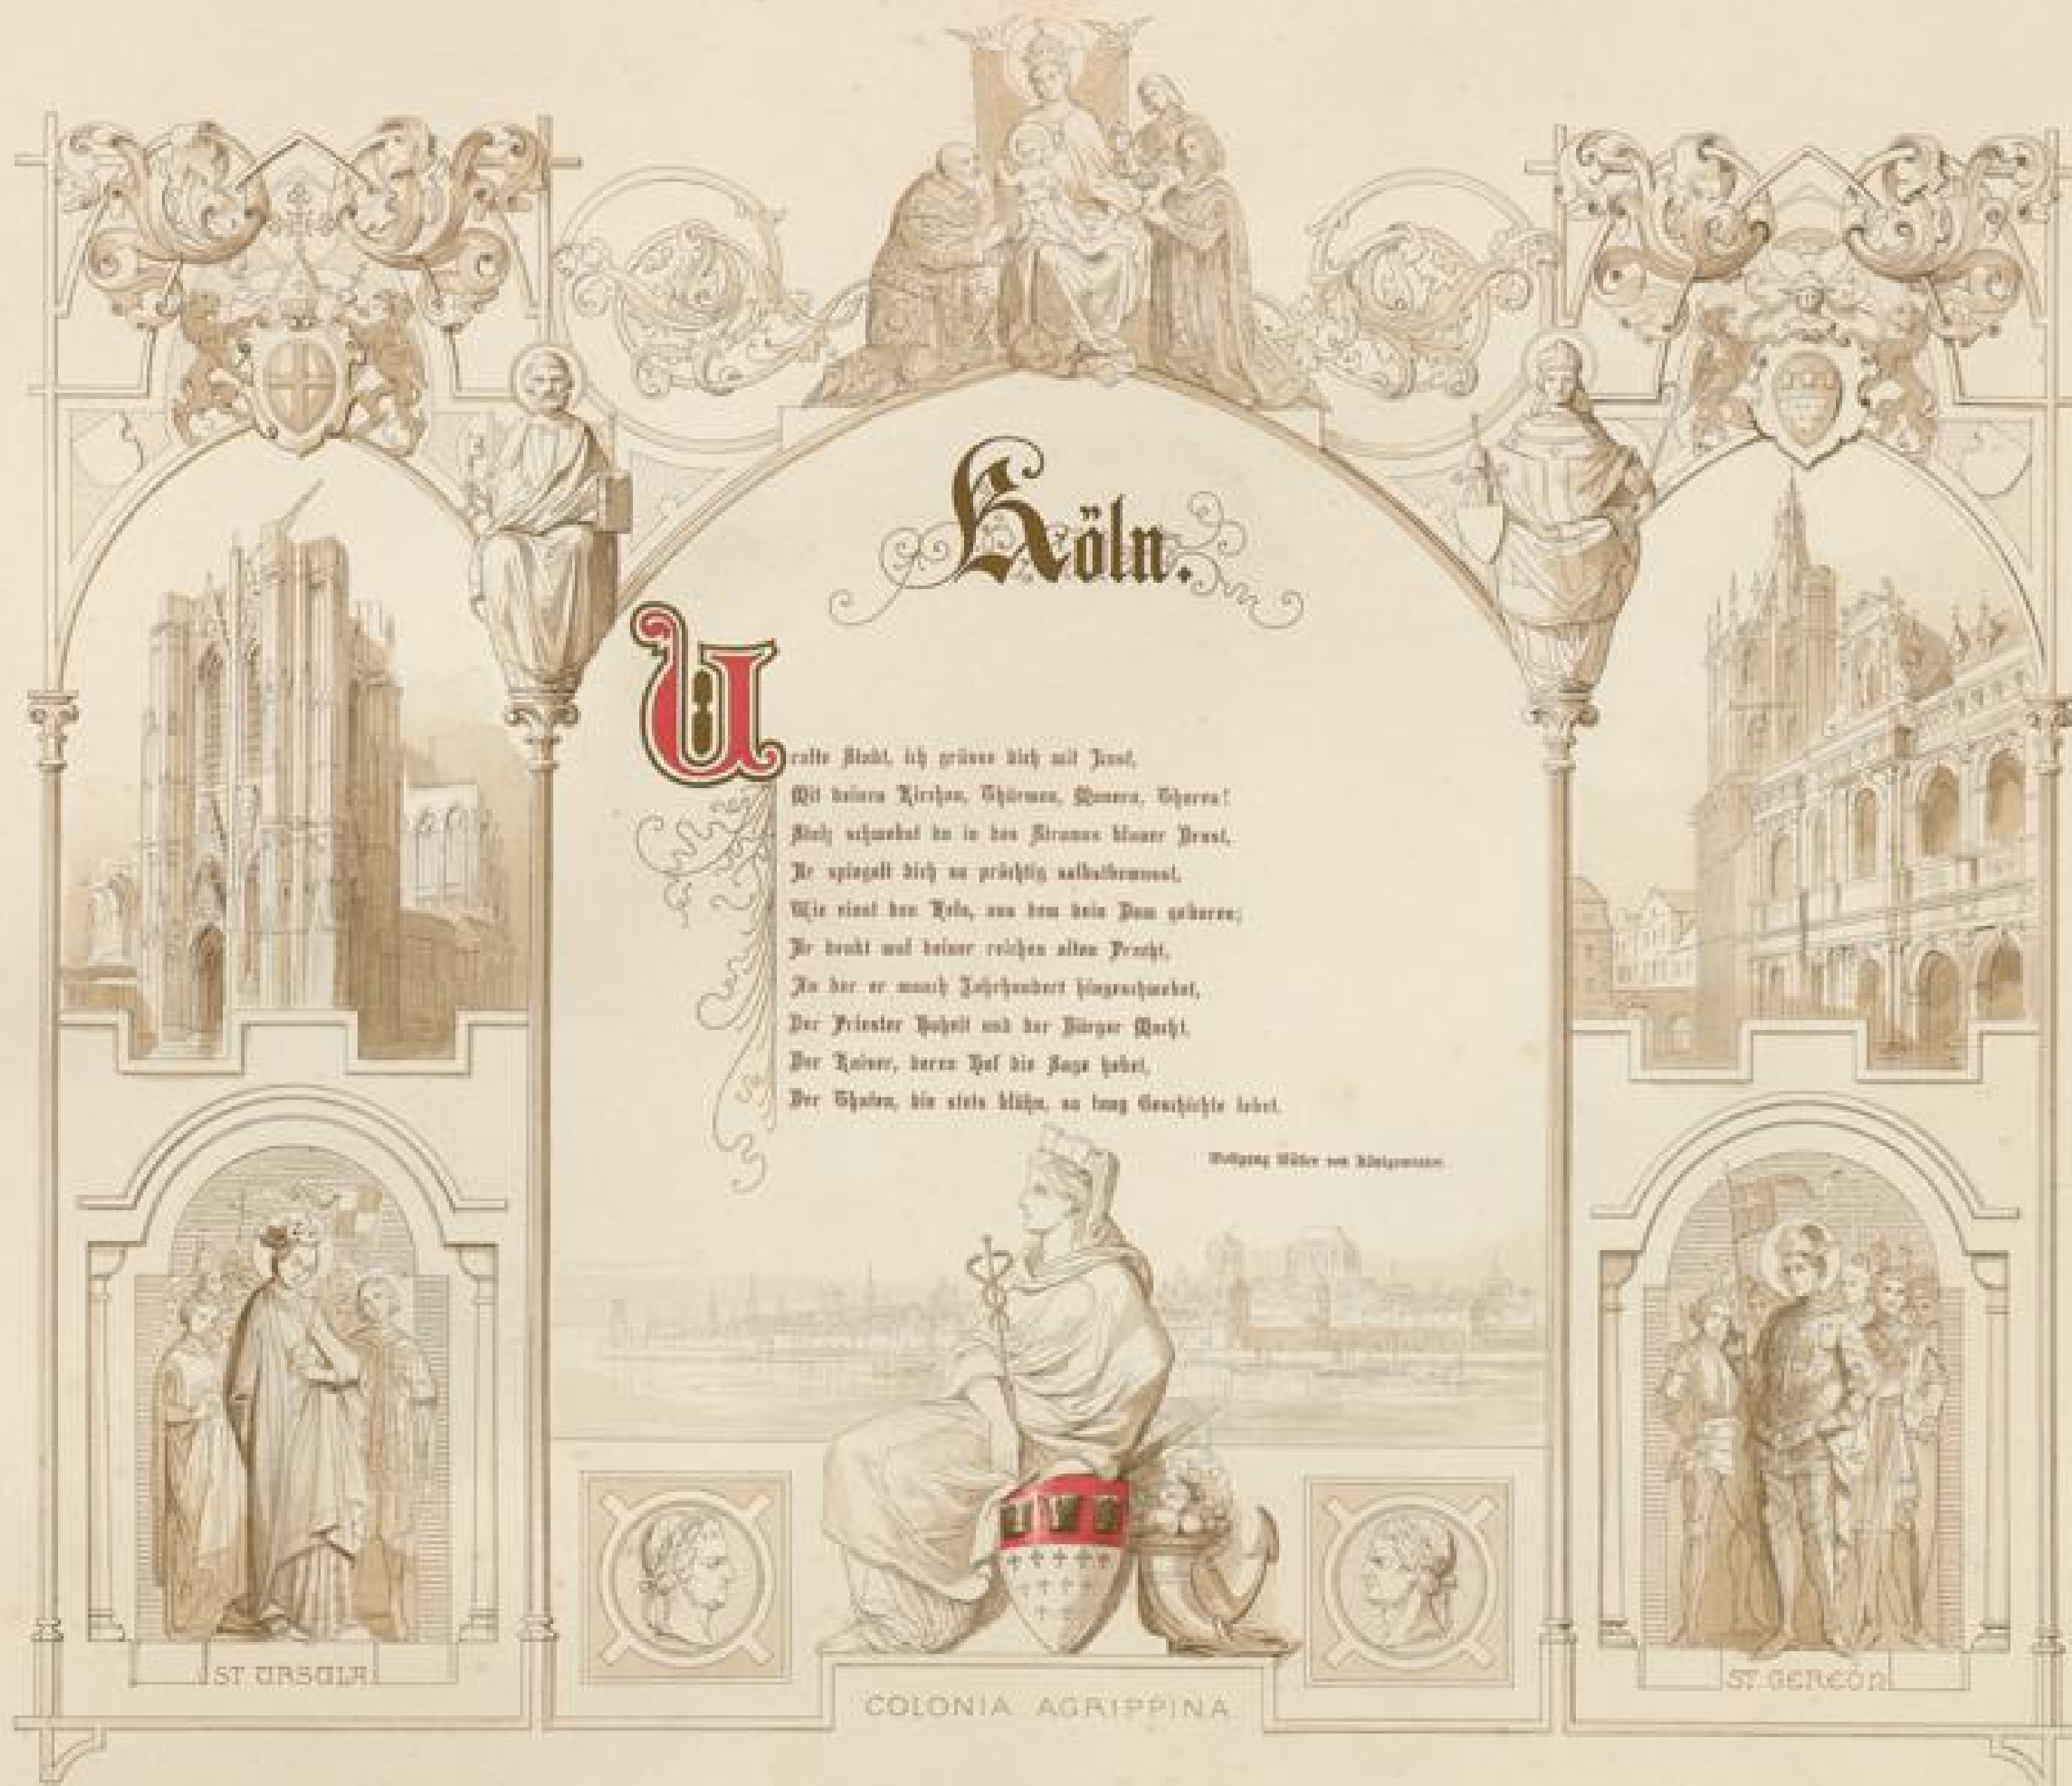 Köln.
Uralte Stadt, ich grüsse dich mit Lust,
Mit deinen Kirchen, Thürmen, Mauern, Thoren!
Stolz schwebst du in des Stromes blauer Brust,
Er spiegelt dich so prächtig selbstbewusst,
Wie einst den Fels, aus dem dein Dom geboren;
Er denkt auf deiner reichen alten Pracht,
An der er manch Jahrhundert hingeschwebet,
Der Priester Hoheit und der Bürger Macht,
Der Kaiser, deren Hof die Sage hebet,
Der Thaten, die stets blühn, so lang Geschichte lebet.
Wolfgang Müller von Königswinter.
ST URSULA
COLONIA AGRIPPINA
ST. GEREON